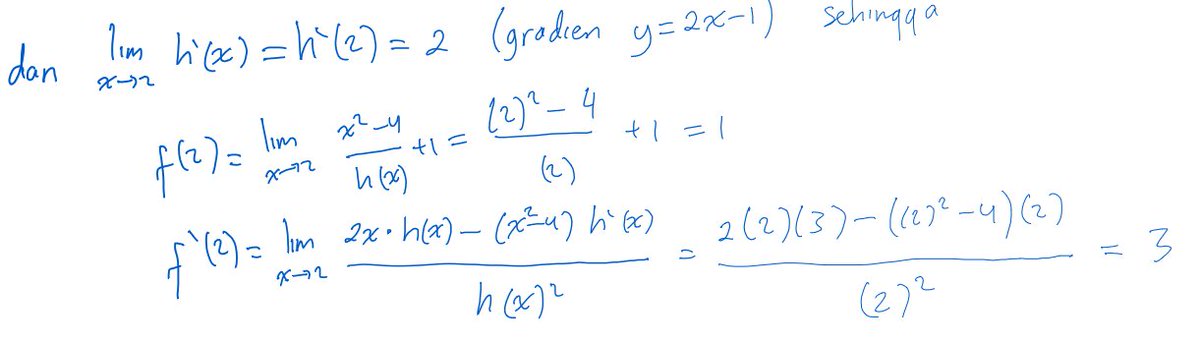 dan lim x→2 h`(x) = h`(2) = 2 (gradien y=2x-1) sehingga
f(2) = lim x→2 x²-4 / h(x) +1 = (2)²-4 / (2) +1 = 1
f`(2) = lim x→2 2x·h(x) - (x²-4) h`(x) / h(x)² = 2(2)(3) - ((2)²-4)(2) / (2)² = 3